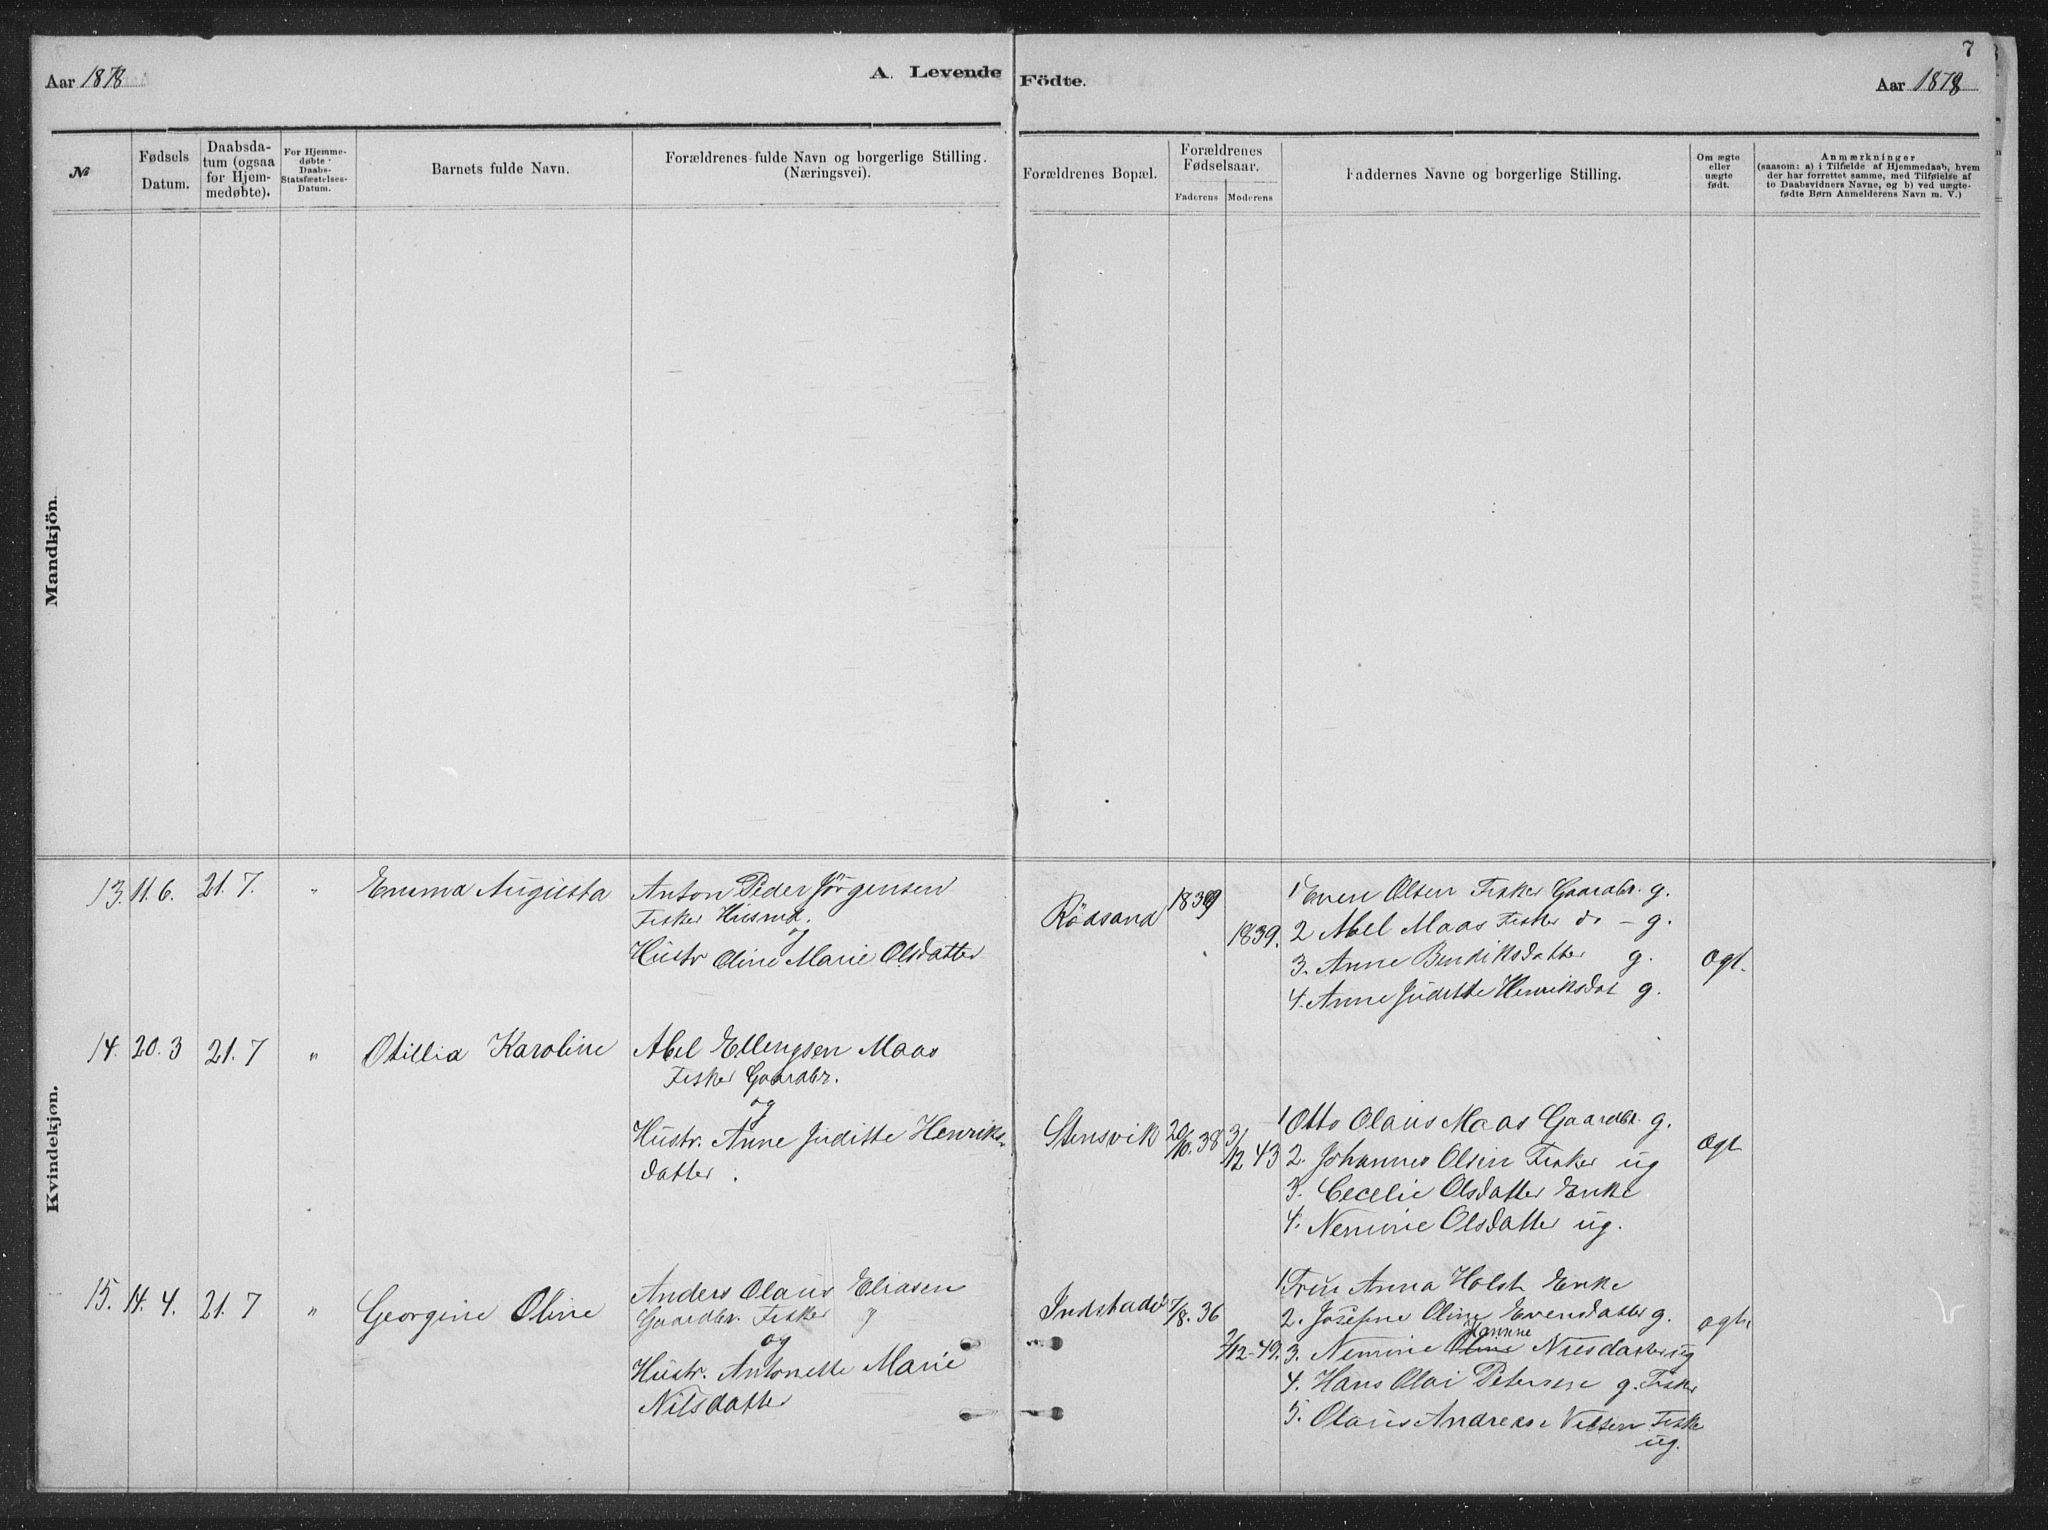 7
Aar 1878
A. Levende Födte.
Aar 1878
№
Fødsels Datum.
Daabsdatum (ogsaa for Hjemmedøbte).
For Hjemmedøbte Daabs-Statsfæstelses-Datum.
Barnets fulde Navn.
Forældrenes fulde Navn og borgerlige Stilling. (Næringsvei).
Forældrenes Bopæl.
Forældrenes Fødselsaar.
Faderens
Moderens
Faddernes Navne og borgerlige Stilling.
Om ægte eller uægte født.
Anmærkninger
(saasom: a) i Tilfælde af Hjemmedaab, hvem
der har forrettet samme, med Tilføielse af
to Daabsvidners Navne, og b) ved uægte-
fødte Børn Anmelderens Navn m. V.)
Mandkjön.
Kvindekjøn.
13. 11. 6. 21. 7. " Emma Augusta
Anton Peder Jørgensen
Fisker Husmd.
og
Hustr Oline Marie Olsdatter
Rödsand 1839
1839.
1 Even Olsen Fisker Gaardbr. g.
2 Abel Maas Fisker do - g.
3. Anne Bendiksdatter g.
4. Anne Juditte Henriksdat g.
Ægt.
14. 20. 3 21. 7 " Otillia Karoline
Abel Ellengsen Maas
Fisker Gaardbr.
og
Hustr. Anne Juditte Henriks-
datter.
Stensvik 20/10. 38 3/12 43
1 Otto Olaus Maas Gaardbr. g.
2. Johannes Olsen Fisker ug
3. Cecelie Olsdatter Enke
4. Nemine Olsdatter ug.
Ægt
15. 14. 4. 21. 7 " Georgine Oline
Anders Olaus Eliasen
Gaardbr. Fisker
og
Hustr. Antonette Marie
Nilsdatter
Indstadö 7/8. 36
2/12-49.
1. Fru Anna Holst Enke
2. Josefine Oline Evensdatter g.
Hannne
3. Nemine Oline Nilsdatter ug
4. Hans Olai Petersen g. Fisker
5. Olaus Andreas Nilsen Fiske
ug.
Ægt.